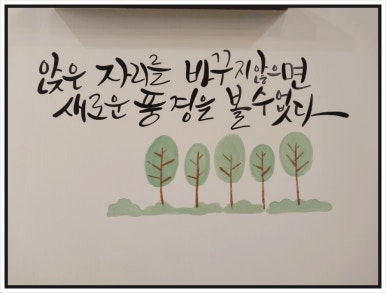 앉은 자리를 바꾸지않으면
새로운 풍경을 볼수없다